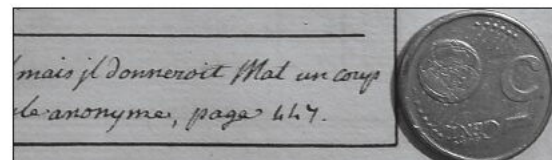 mais jl donneroit Mat un coup
anonyme, page 447.